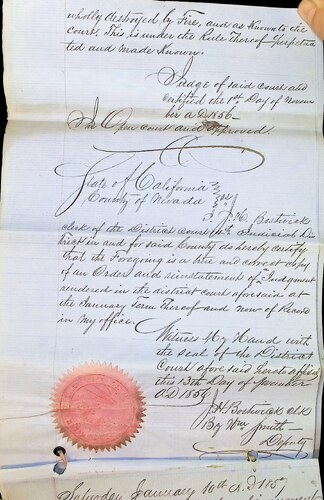 wholly destroyed by Fire, and as Known to the
Court. This is under the Rule Thereof perpetua
ted and made Known.
Judge of said court and
certified the 1st Day of Novem
ber A D 1856—
In Open court and approved.
State of California
County of Nevada } ss
I, J. H. Bostwick
clerk of the District Court 14th Judicial Dis
trict in and for said County do hereby certify
that the Foregoing is a true and correct copy
of an Order and reinstatement of Judgment
rendered in the district court aforesaid at
the January Term Thereof and now of Record
in my office.
Witness My Hand with
the Seal of the District
Court aforesaid hereto affixed
this 13th Day of
A D 1856
J H Bostwick Clk
By Wm Smith
Deputy
Saturday January 10th A.D 1857